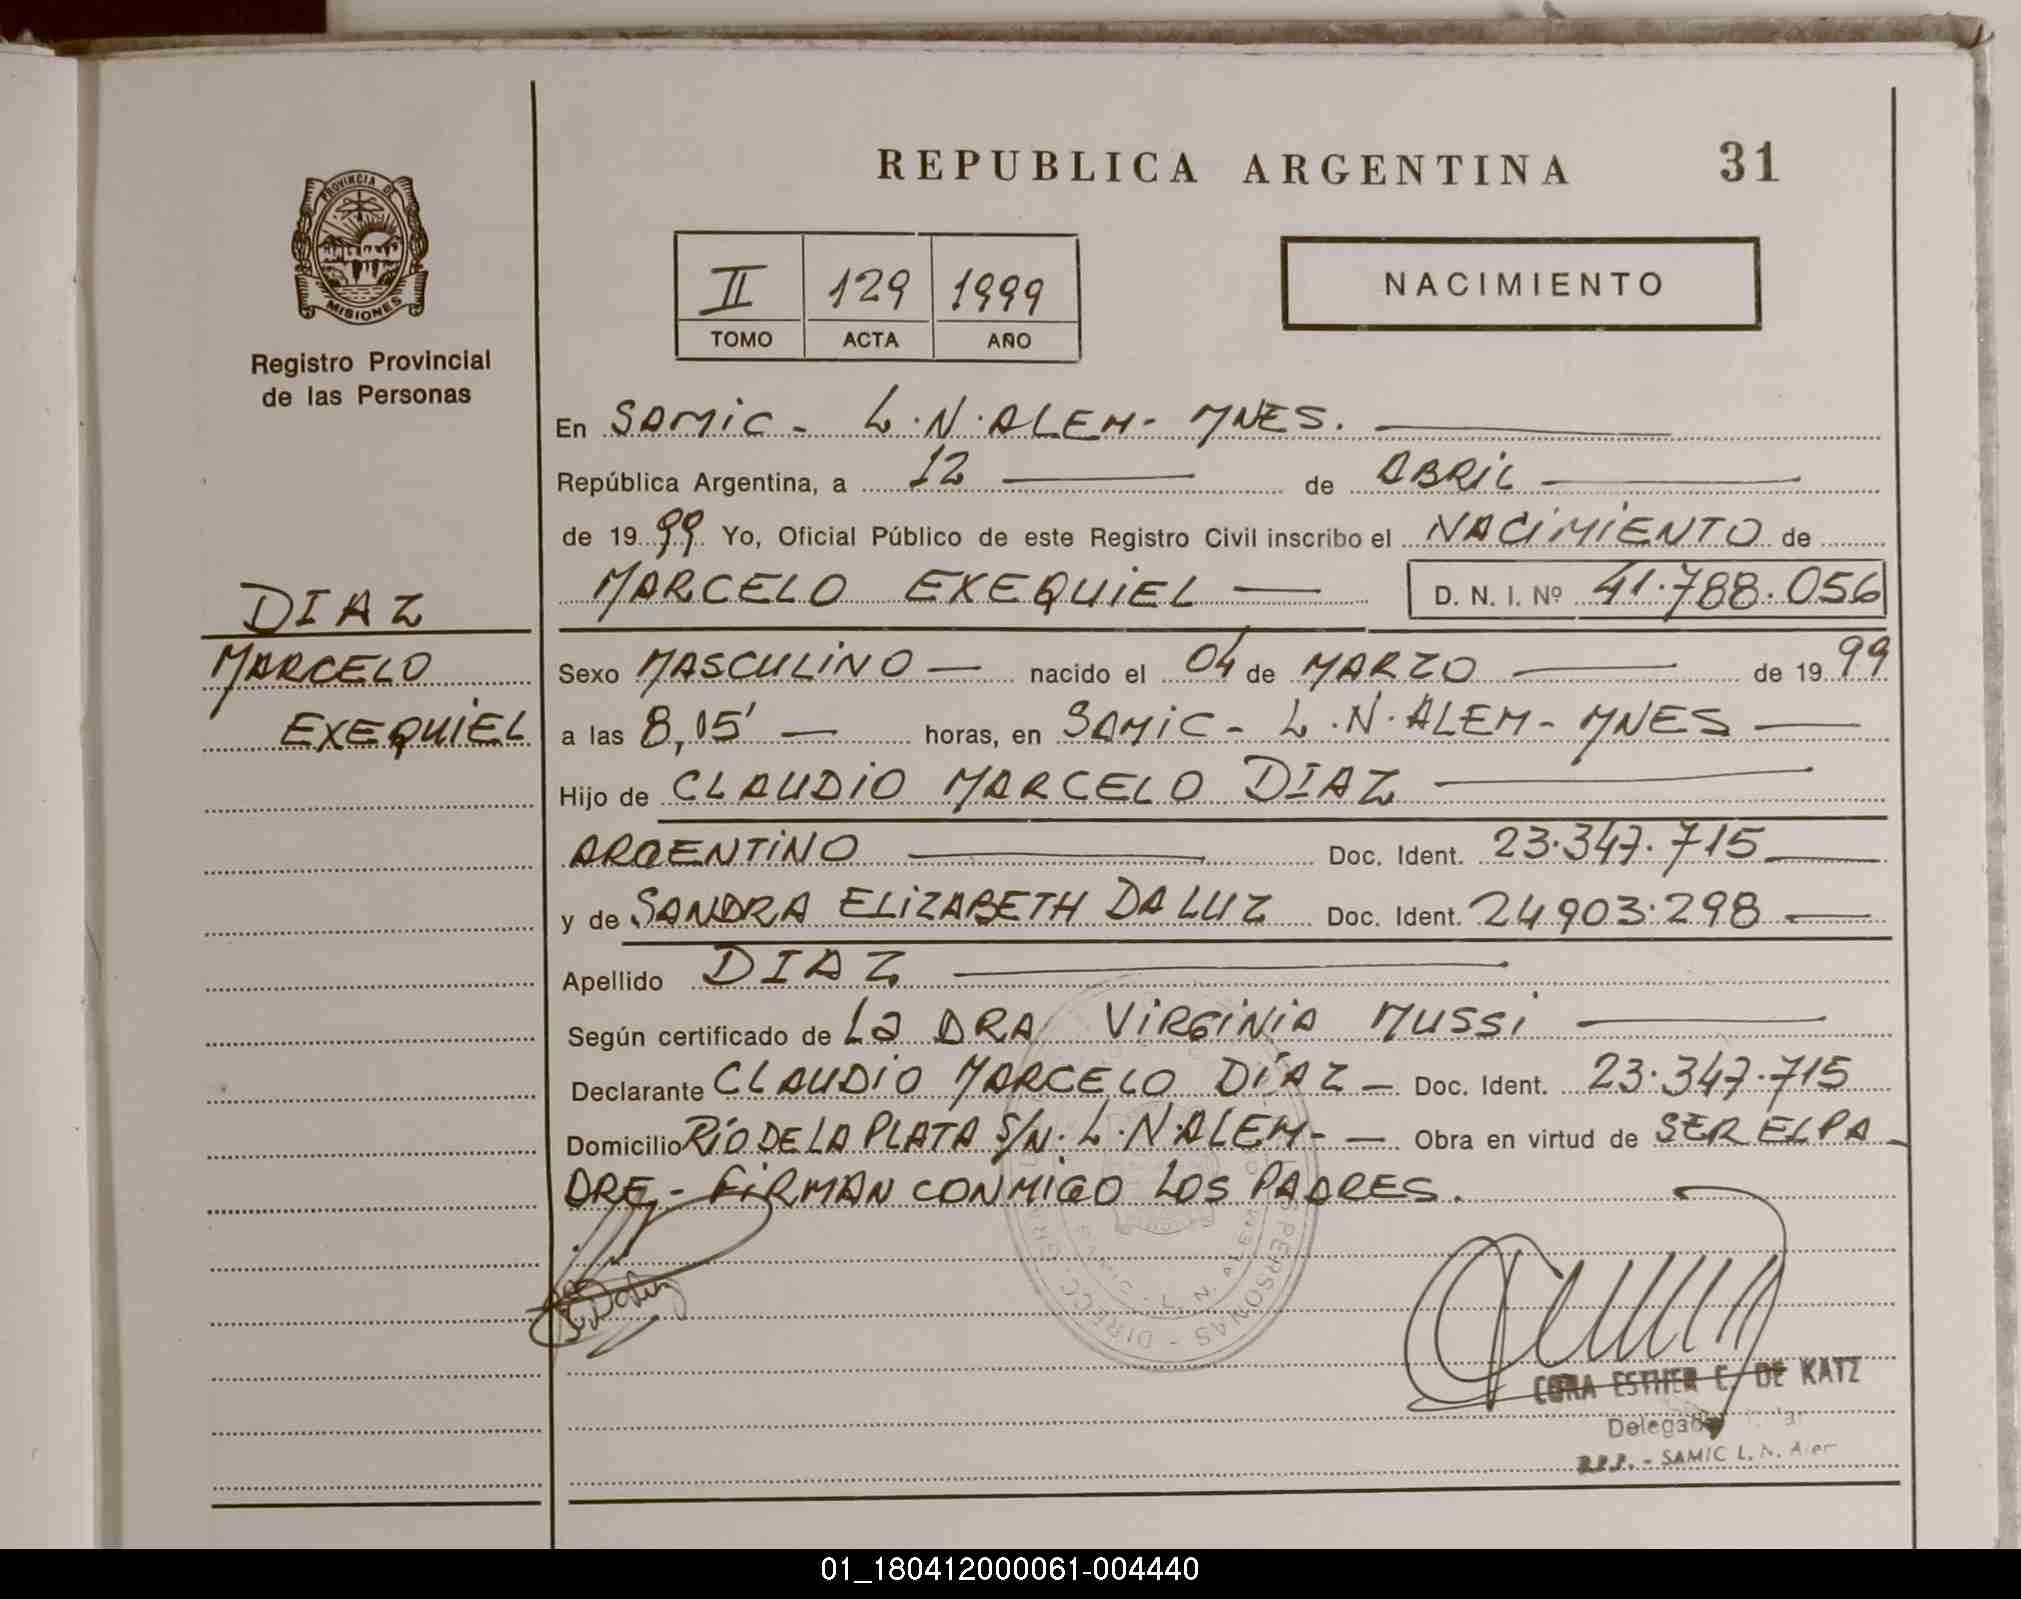 REPUBLICA ARGENTINA 31
PROVINCIA DE
MISIONES
Registro Provincial
de las Personas
II 129 1999
TOMO ACTA AÑO
NACIMIENTO
En SAMIC - L.N.ALEM- MNES.
República Argentina, a 12 de ABRIL
de 1999 Yo, Oficial Público de este Registro Civil inscribo el NACIMIENTO de
MARCELO EXEQUIEL D. N. I. Nº 41.788.056
DIAZ
MARCELO
EXEQUIEL
Sexo MASCULINO nacido el 04 de MARZO de 1999
a las 8,05' horas, en SAMIC - L.N.ALEM - MNES
Hijo de CLAUDIO MARCELO DIAZ
ARGENTINO Doc. Ident. 23.347.715
y de SANDRA ELIZABETH DA LUZ Doc. Ident. 24903.298
Apellido DIAZ
Según certificado de La DRA VIRGINIA MUSSI
Declarante CLAUDIO MARCELO DÍAZ - Doc. Ident. 23.347.715
Domicilio RÍO DE LA PLATA S/N. L.N.ALEM- Obra en virtud de SER EL PA-
DRE - FIRMAN CONMIGO LOS PADRES.
CORA ESTHER C. DE KATZ
R.P.P. - SAMIC L. N. Alem
01_180412000061-004440